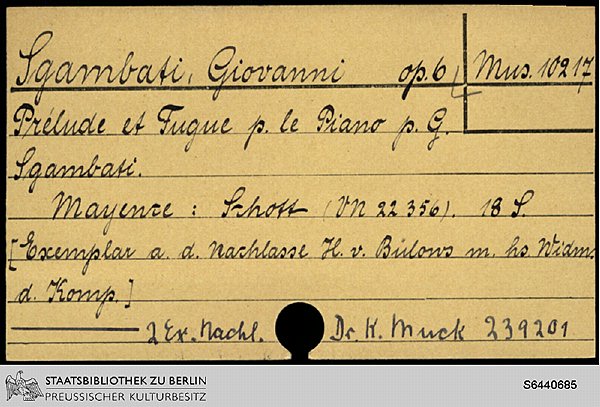 Sgambati, Giovanni op. 6 Mus. 10217
Prélude et Fugue p. le Piano p. G.
Sgambati.
Mayence : Schott (VN 22 356). 18 S.
[Exemplar a. d. Nachlasse H. v. Bülows m. hs. Widm.
d. Komp.]
2 Ex. Nachl. Dr. K. Muck 239201
STAATSBIBLIOTHEK ZU BERLIN
PREUSSISCHER KULTURBESITZ
S6440685